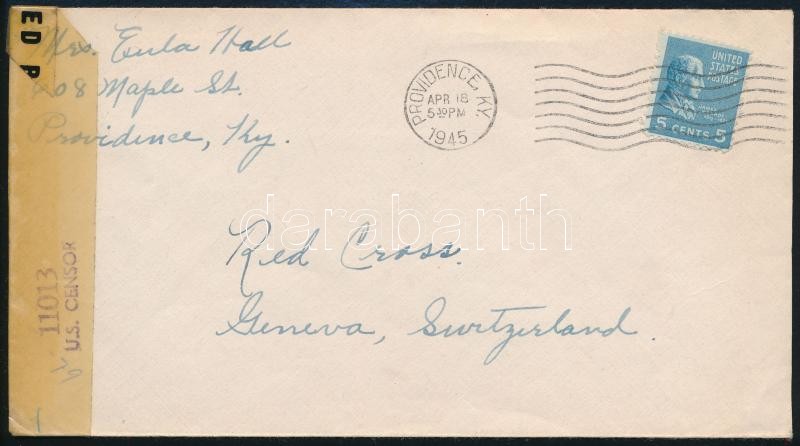 ED B
Mrs. Eula Hall
408 Maple St.
Providence, Ky.
PROVIDENCE, KY.
APR 18
5 30 PM
1945
UNITED
STATES
POSTAGE
JAMES
MONROE
5 CENTS 5
darabanth
Red Cross.
Geneva, Switzerland.
11013
U.S. CENSOR